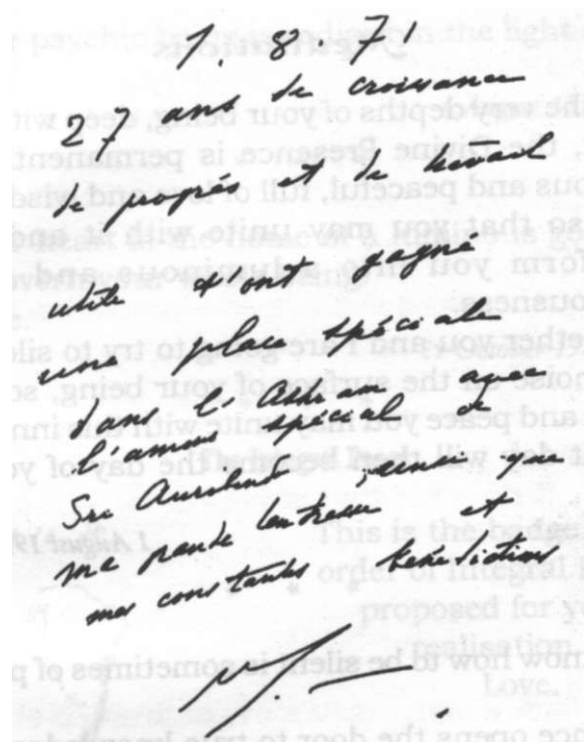 1. 8. 71
27 ans de croissance
de progrès et de travail
utile t'ont gagné
une place spéciale
dans l'Ashram avec
l'amour spécial de
Sri Aurobindo, ainsi que
ma grande tendresse et
mes constantes bénédictions